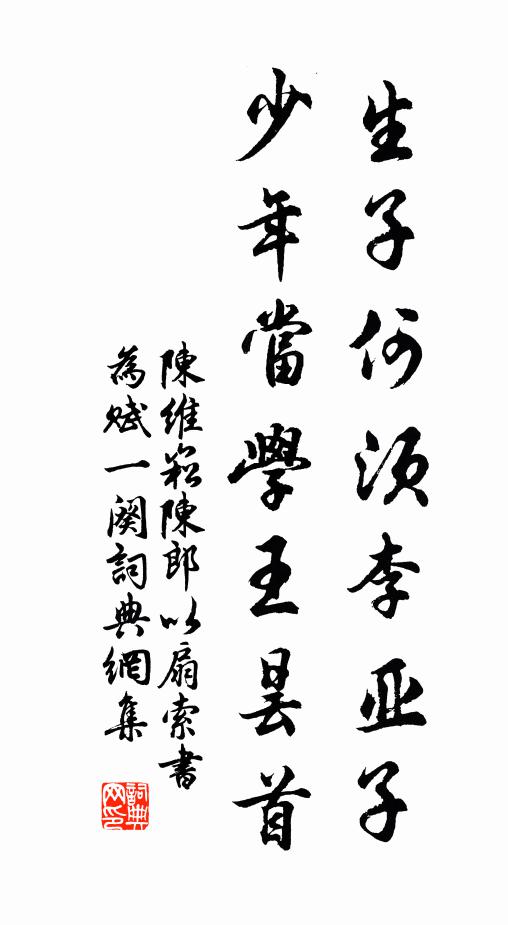 生子何須李亚子
少年當學王曇首
陳維崧陳郎以扇索書
為賦一闋詞典網集
詞典网印